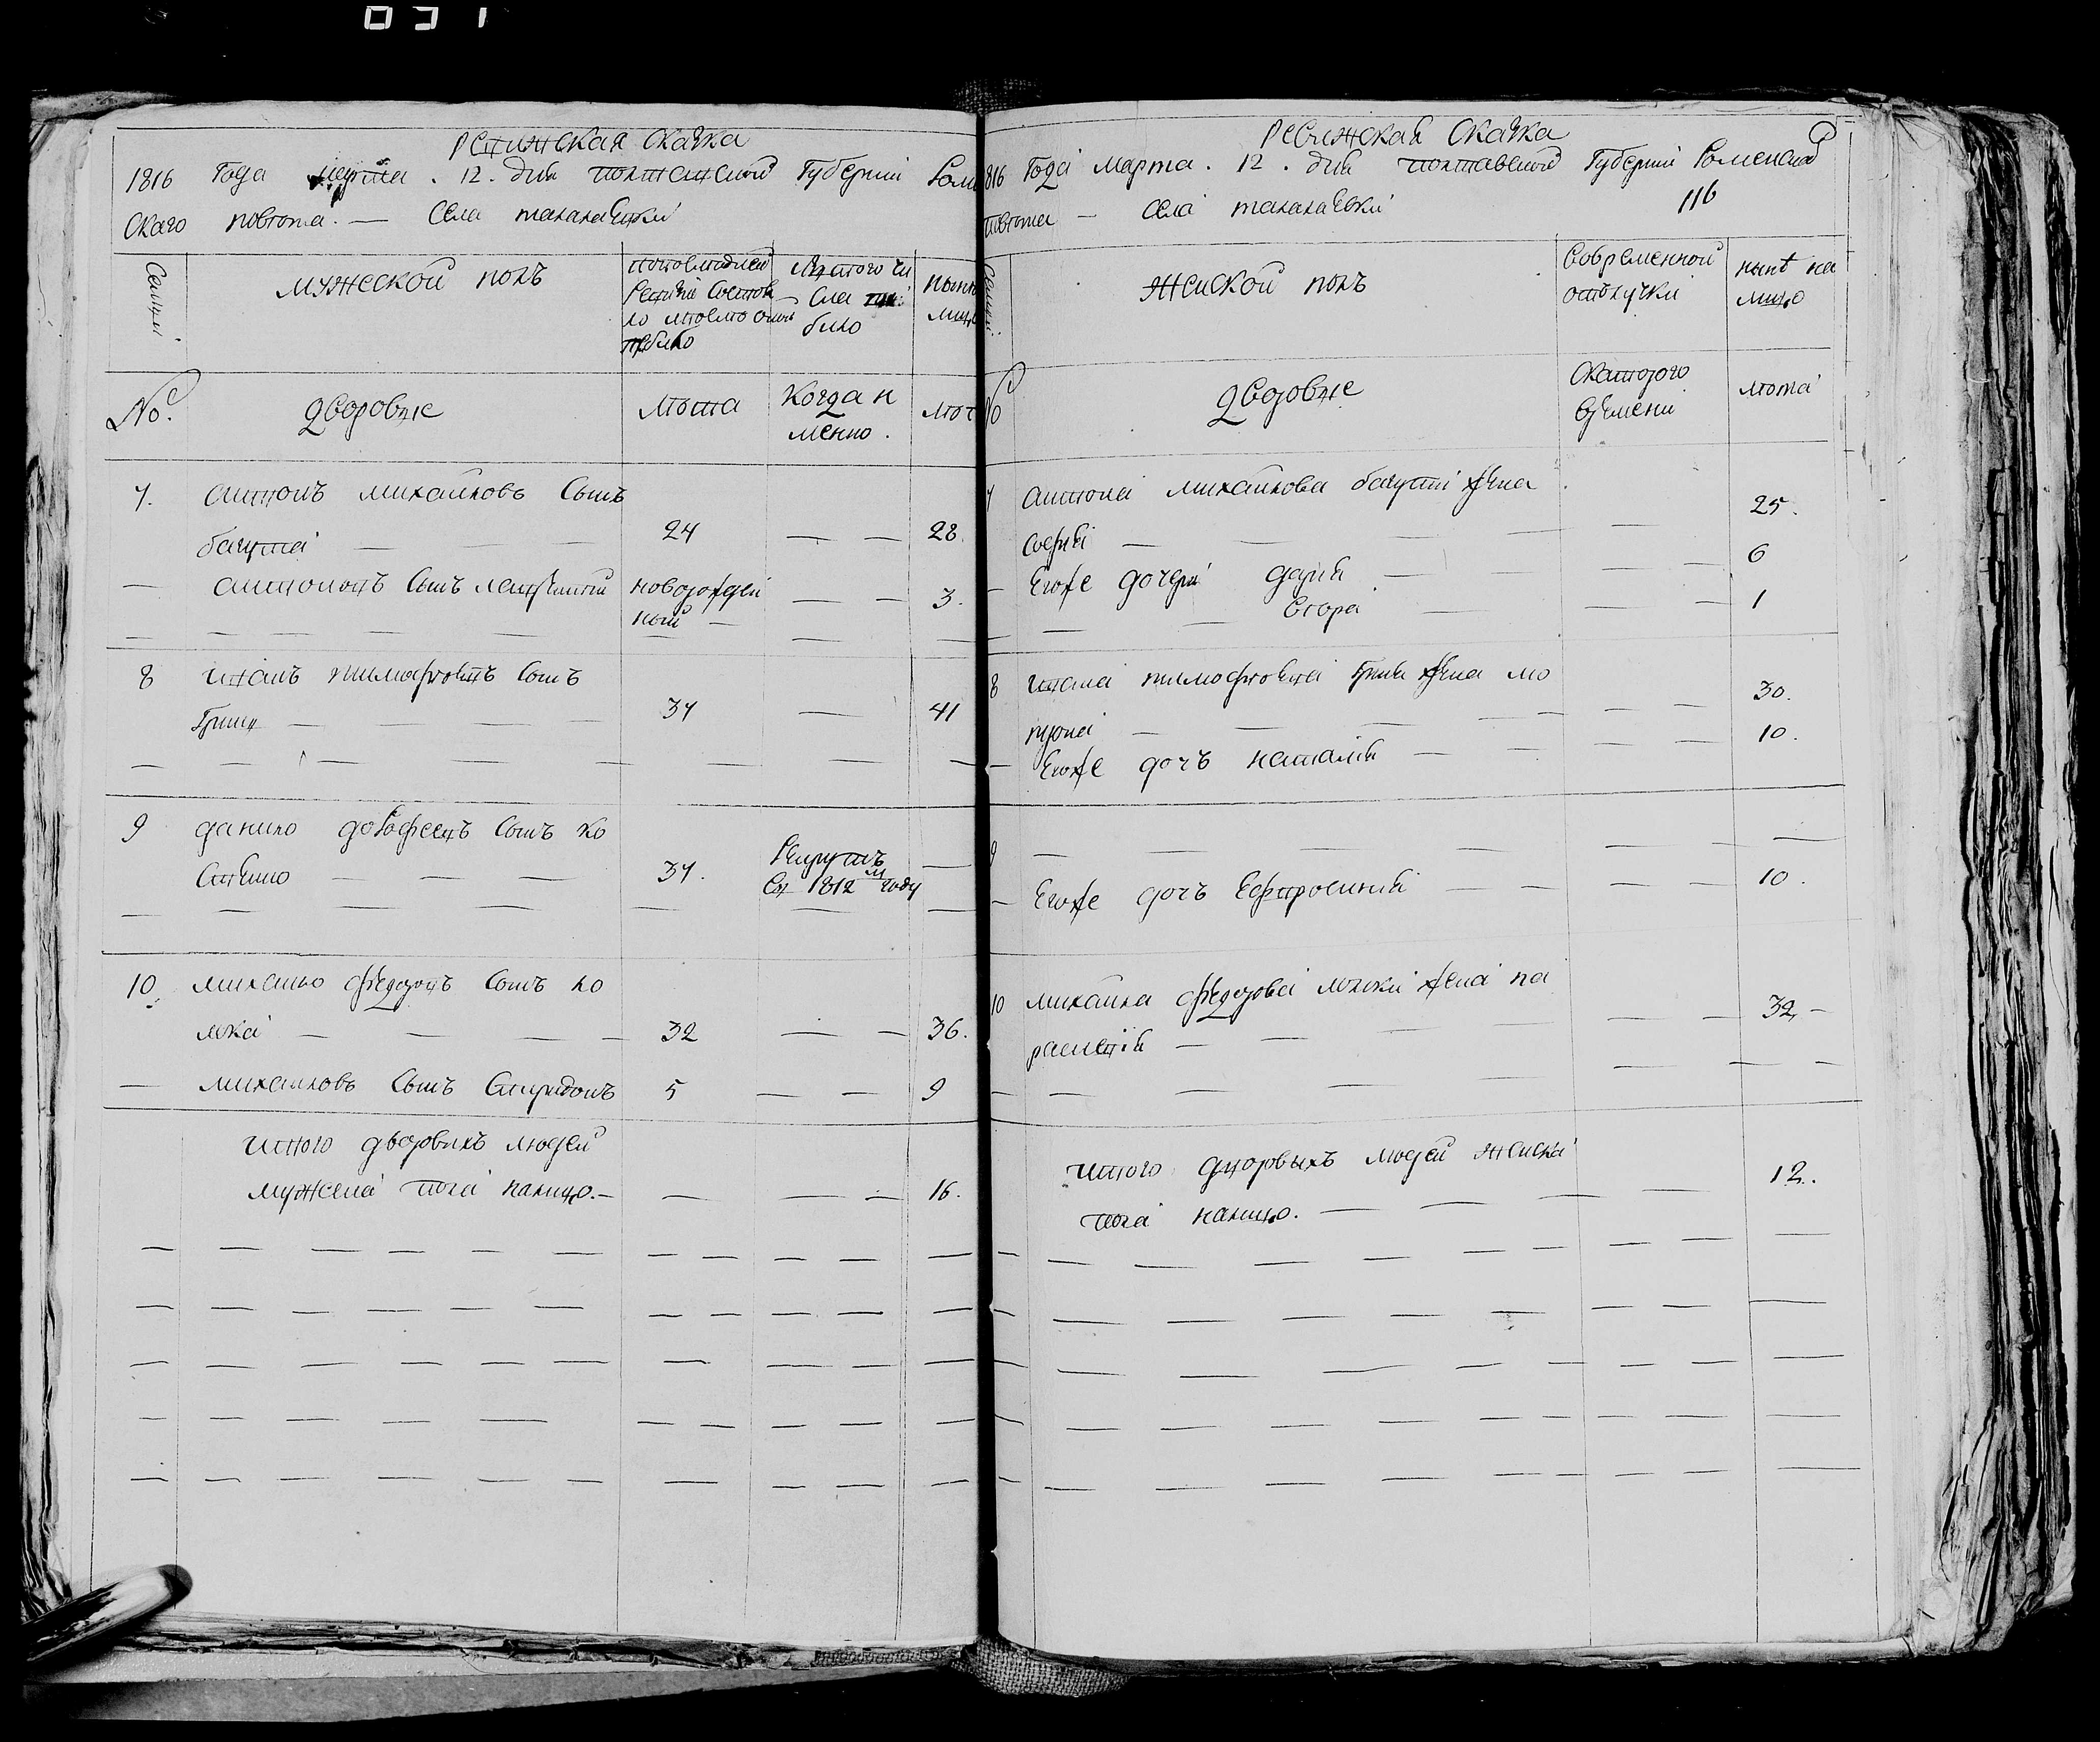 Ревижская скаска
1816 Года марта . 12 . дня полтавской Губернїи Роме
скаго повѣта. — Села талалаевки
Семьи
мужеской полъ
По последней Ревизїи состоя
ло и после оной
прибыло
Изтого чи
сла
било
ныне
лицо
№.
Дворовые
Лѣта
Когда и
менно.
лѣт
7. антонъ михайловъ сынъ
багута — — — 24 — — 28.
— антоновъ сынъ леонтий новорожден
ный — — — 3.
8 иванъ тимофѣевъ сынъ
Гриць — — — 37 — 41
9 данило дорофеевъ сынъ ко
стенко — — — 37. Рекрутъ —
въ 1812м году
10. михайло федоровъ сынъ ло
мка — — — — 32 — — 36.
— михайловъ сынъ спиридонъ 5 — — 9
итого дворовыхъ людей
мужеска пола налицо. — — — — 16.
Ревижская Скаска
816 Года Марта . 12 . дня полтавской Губернїи Роменской
повѣта — села талалаевки
116
Семьи
женской полъ
Современной
отлучки
нынѣ на
лицо
№
Дворовые
Скоторого
времени
лѣта
7 антона михайлова багути жена
софия — — — — — 25.
— Егоже дочери дария — — — — 6
— — вторая — — — 1
8 ивана тимофѣева гриця жена мо
трона — — — — — — 30.
— Егоже дочъ наталия — — — — 10.
9 — — — — — — — —
— Егоже дочъ Ефросиния — — — — 10.
10 михайла федорова ломки жена па
раскевїя — — — — — — 32, —
итого дворовыхъ людей женска
пола налицо. — — — — — 12.